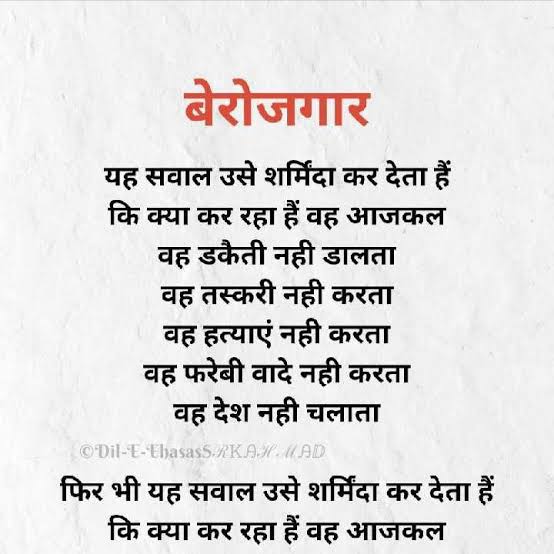 बेरोजगार
यह सवाल उसे शर्मिंदा कर देता हैं
कि क्या कर रहा हैं वह आजकल
वह डकैती नही डालता
वह तस्करी नही करता
वह हत्याएं नही करता
वह फरेबी वादे नही करता
वह देश नही चलाता
©Dil-E-EhasasSRKAHMAD
फिर भी यह सवाल उसे शर्मिंदा कर देता हैं
कि क्या कर रहा हैं वह आजकल